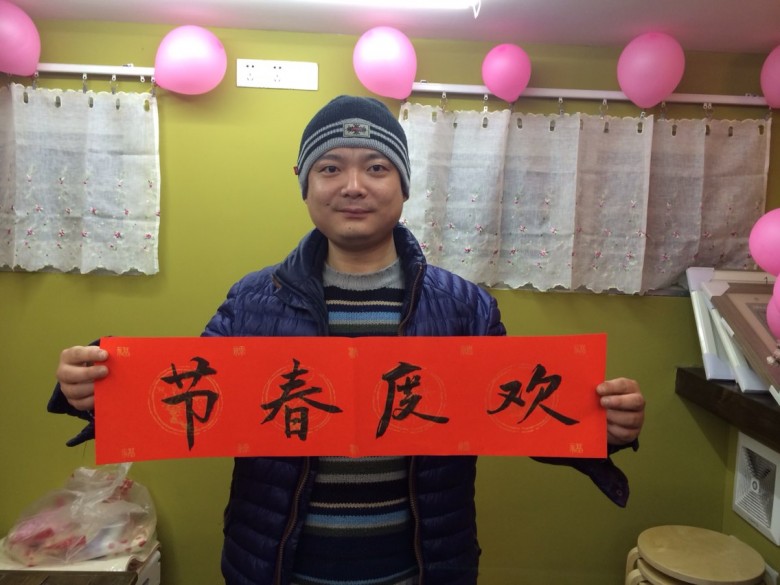 欢度春节